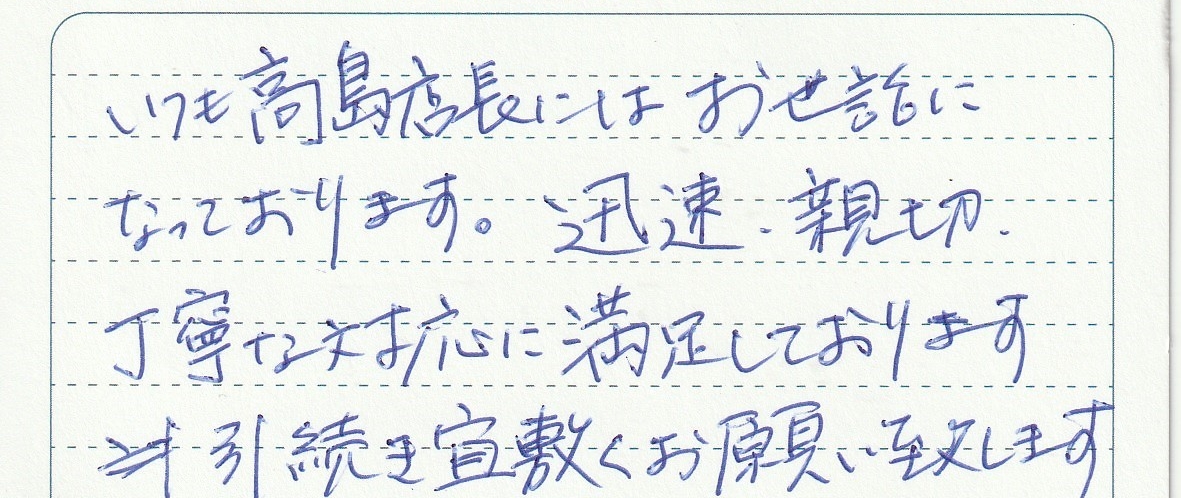 いつも高島店長にはお世話に
なっております。迅速、親切、
丁寧な対応に満足しております
引続き宣敷くお願い致します